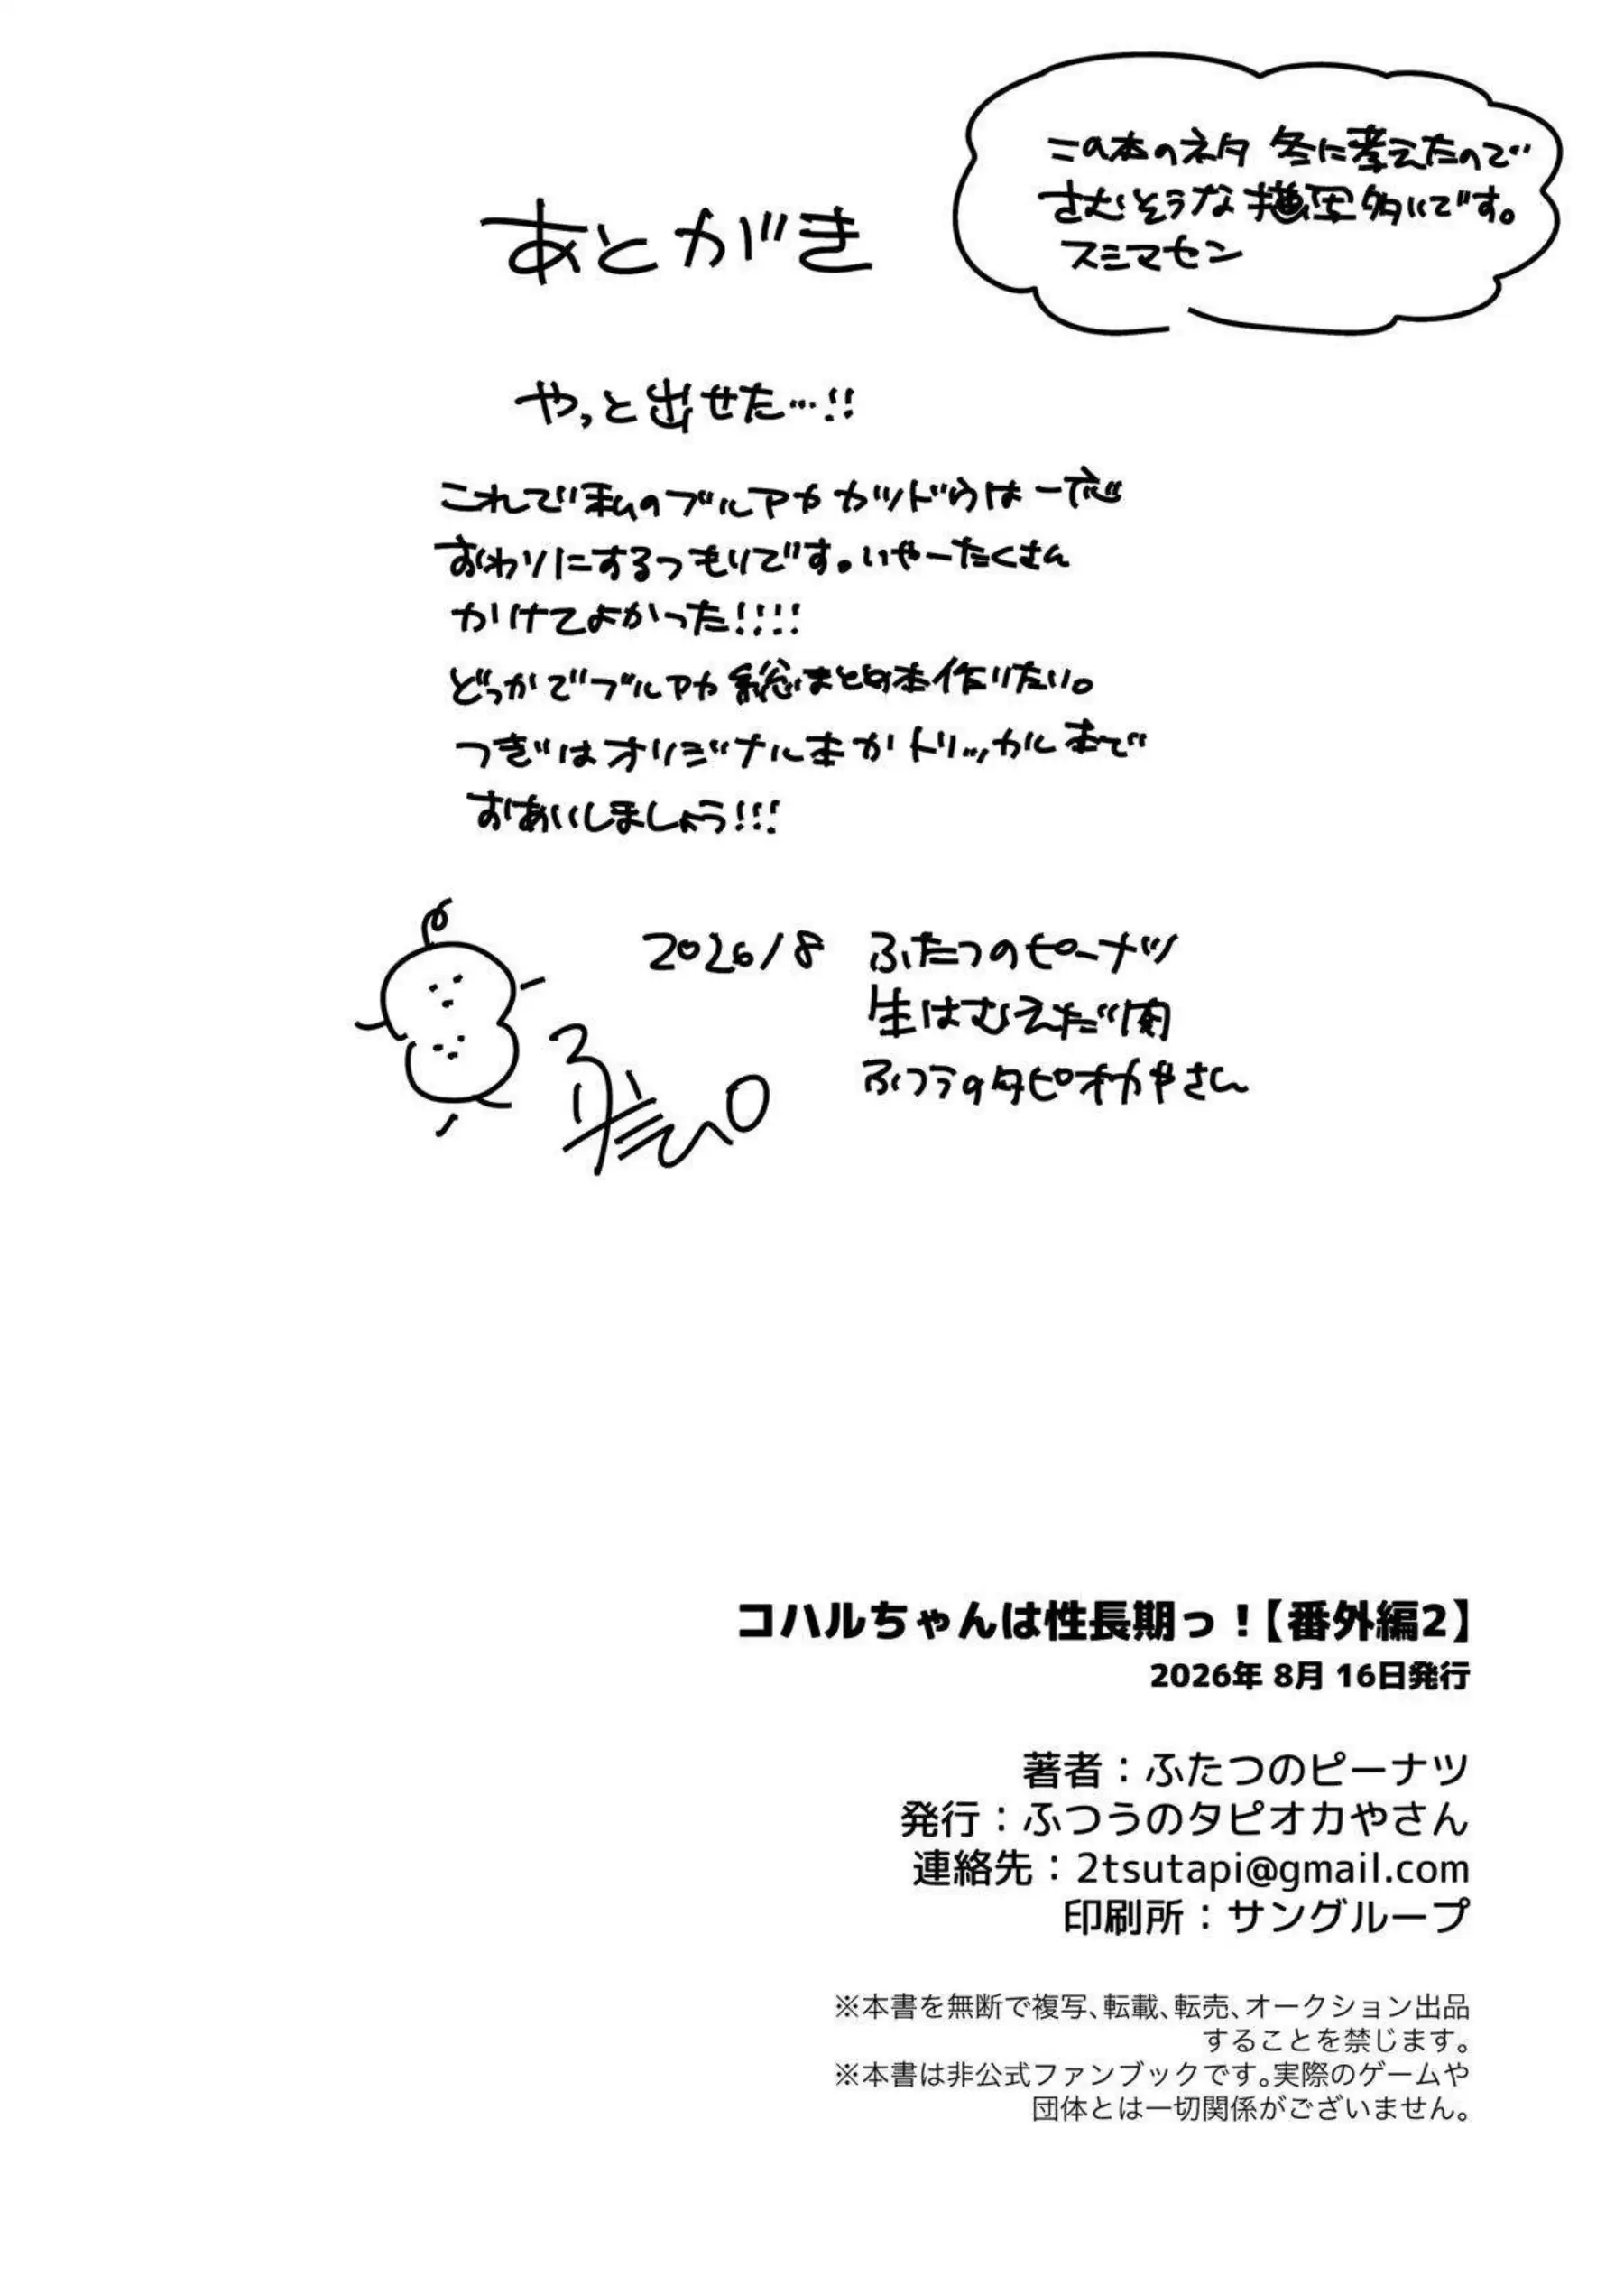 あとがき
この本のネタ 冬に考えたので
さむそうな描写多いです。
スミマセン
やっと出せた…!!
これで私のブルアカカツドウは一応
おわりにするつもりです。いやーたくさん
かけてよかった!!!!
どっかでブルアカ総まとめ本作りたい。
つぎはオリジナル本かトリッカル本で
おあいしましょう!!!
2026/8 ふたつのピーナツ
生はむえだ肉
ふつうのタピオカやさん
コハルちゃんは性長期っ!【番外編2】
2026年 8月 16日発行
著者:ふたつのピーナツ
発行:ふつうのタピオカやさん
連絡先:2tsutapi@gmail.com
印刷所:サングループ
※本書を無断で複写、転載、転売、オークション出品
することを禁じます。
※本書は非公式ファンブックです。実際のゲームや
団体とは一切関係がございません。